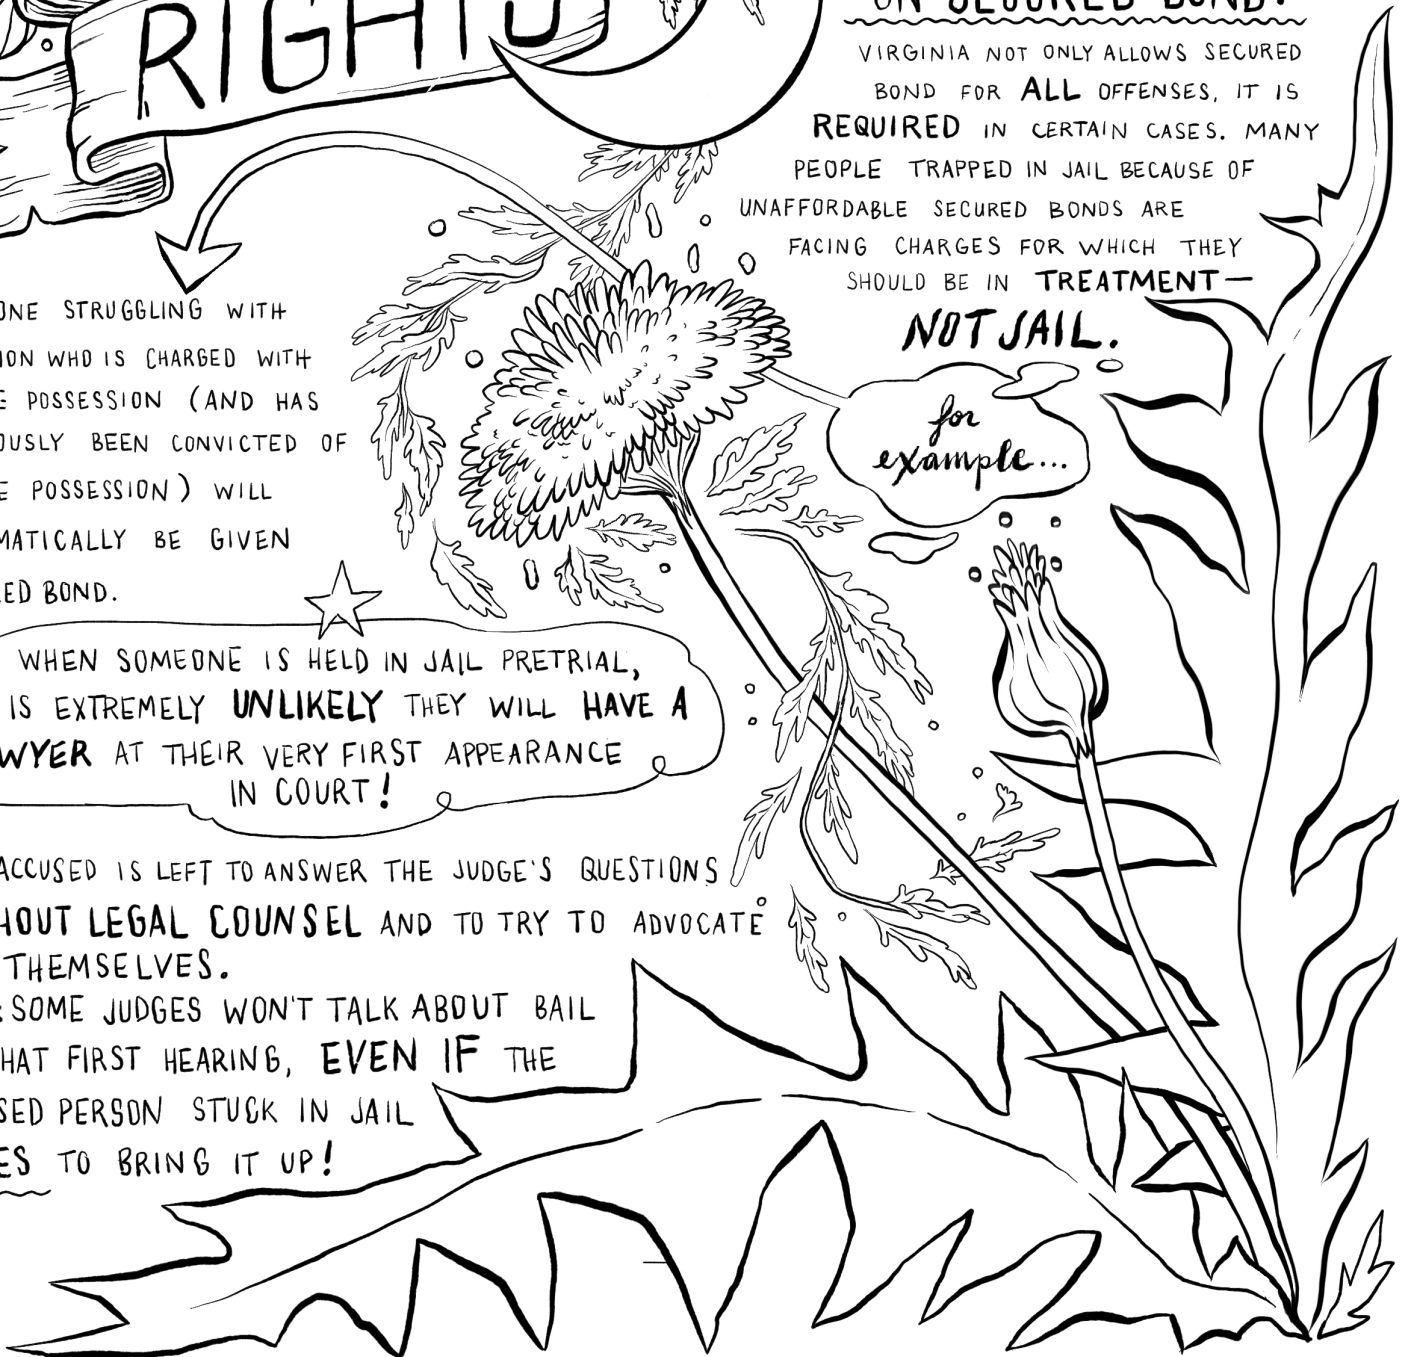 RIGHTS
ON SECURED BOND.
VIRGINIA NOT ONLY ALLOWS SECURED
BOND FOR ALL OFFENSES, IT IS
REQUIRED IN CERTAIN CASES. MANY
PEOPLE TRAPPED IN JAIL BECAUSE OF
UNAFFORDABLE SECURED BONDS ARE
FACING CHARGES FOR WHICH THEY
SHOULD BE IN TREATMENT—
NOT JAIL.
for
example...
ONE STRUGGLING WITH
ION WHO IS CHARGED WITH
E POSSESSION (AND HAS
OUSLY BEEN CONVICTED OF
E POSSESSION) WILL
MATICALLY BE GIVEN
ED BOND.
WHEN SOMEONE IS HELD IN JAIL PRETRIAL,
IS EXTREMELY UNLIKELY THEY WILL HAVE A
WYER AT THEIR VERY FIRST APPEARANCE
IN COURT!
ACCUSED IS LEFT TO ANSWER THE JUDGE'S QUESTIONS
HOUT LEGAL COUNSEL AND TO TRY TO ADVOCATE
THEMSELVES.
: SOME JUDGES WON'T TALK ABOUT BAIL
HAT FIRST HEARING, EVEN IF THE
SED PERSON STUCK IN JAIL
ES TO BRING IT UP!